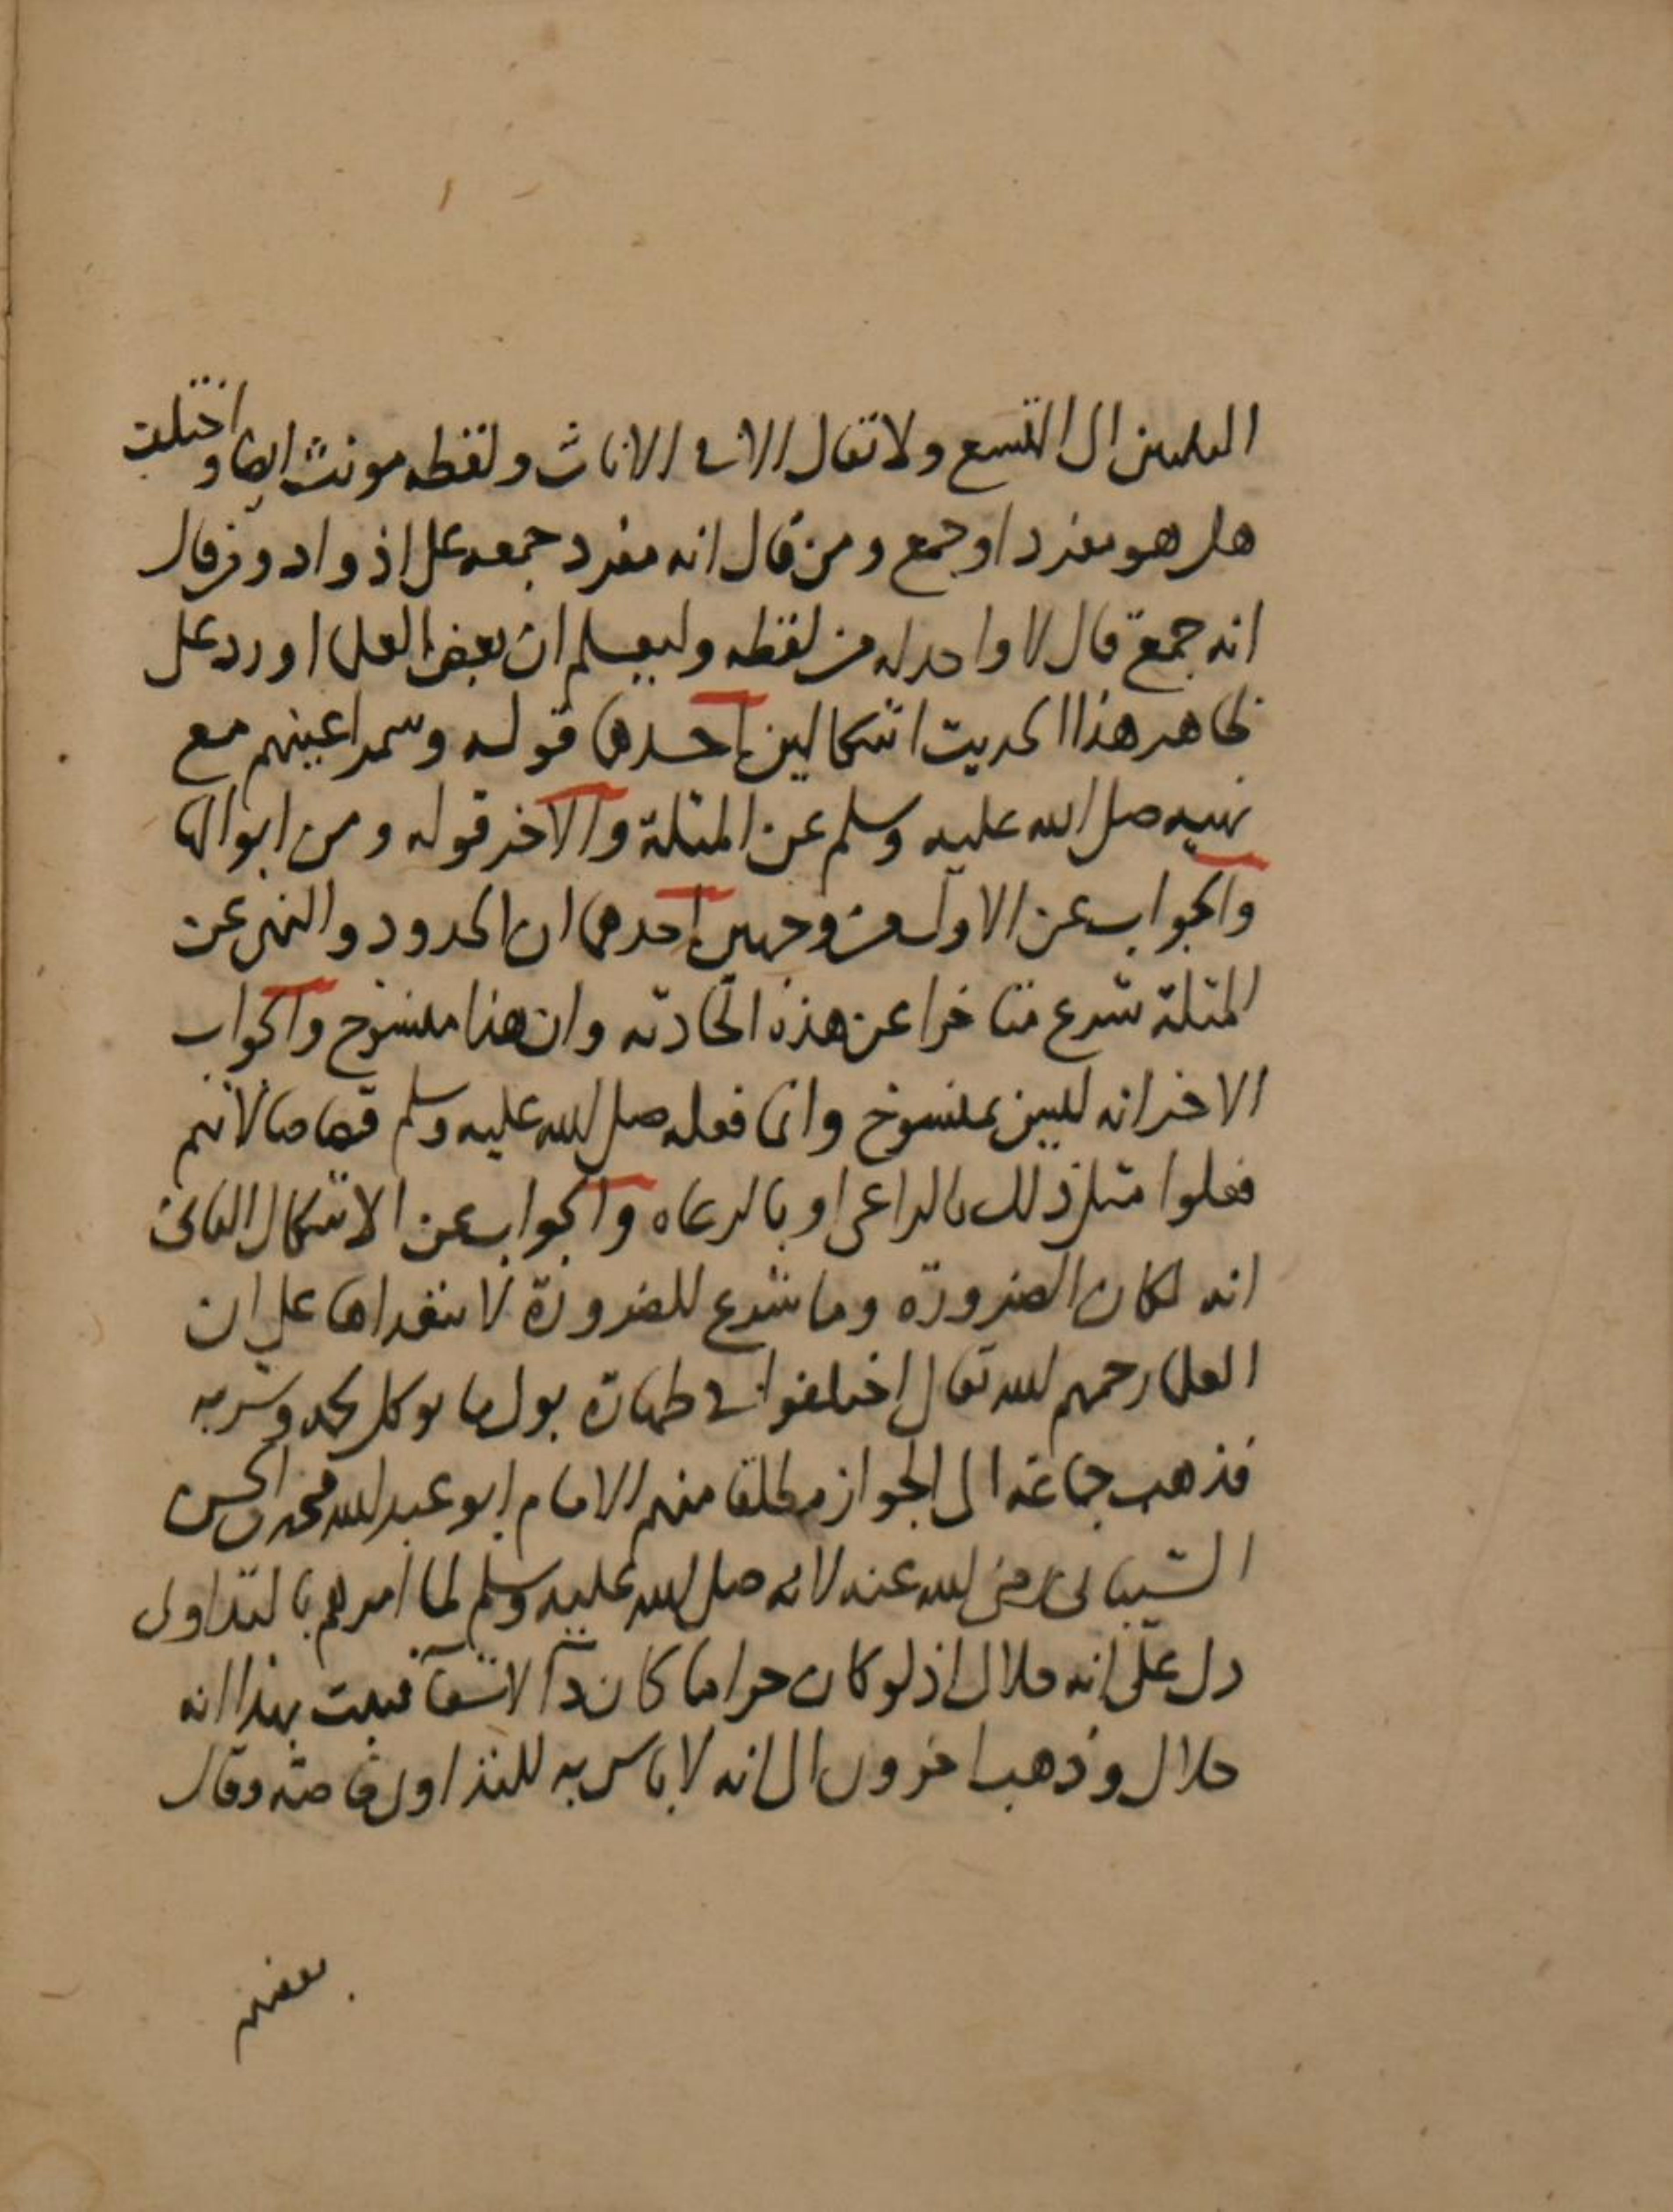 الثلاثين الى التسع ولا تقال الا في الاناث ولفظه مونث ايضا واختلف
هل هو مفرد او جمع ومن قال انه مفرد جمعه على اذواد ومن قال
انه جمع قال لا واحد له من لفظه وليعلم ان بعض العلما اورد على
ظاهر هذا الحديث اشكالين احدها قوله وسمر اعينهم مع
نهيه صلى الله عليه وسلم عن المثلة والاخر قوله ومن ابوالها
والجواب عن الاول من وجهين احدها ان الحدود والنهي عن
المثلة شرع متاخرا عن هذه الحادثه وان هذا منسوخ والجواب
الاخر انه ليس بمنسوخ وانما فعله صلى الله عليه وسلم قصاصا لانهم
فعلوا مثل ذلك بالراعى او بالرعاه والجواب عن الاشكال الثانى
انه لمكان الضرورة وما شرع للضرورة لا يتعداها على ان
العلما رحمهم الله تعالى اختلفوا في طهارة بول ما يوكل لحمه وشربه
فذهب جماعة الى الجواز مطلقا منهم الامام ابو عبد الله محمد بن الحسن
الشيبانى رضى الله عنه لانه صلى الله عليه وسلم لما امرهم بالتداوى
دل على انه حلال اذ لو كان حراما كان دآ لا شفآ فثبت بهذا انه
حلال وذهب اخرون الى انه لا باس به للتداوى خاصته وقال
بعضهم